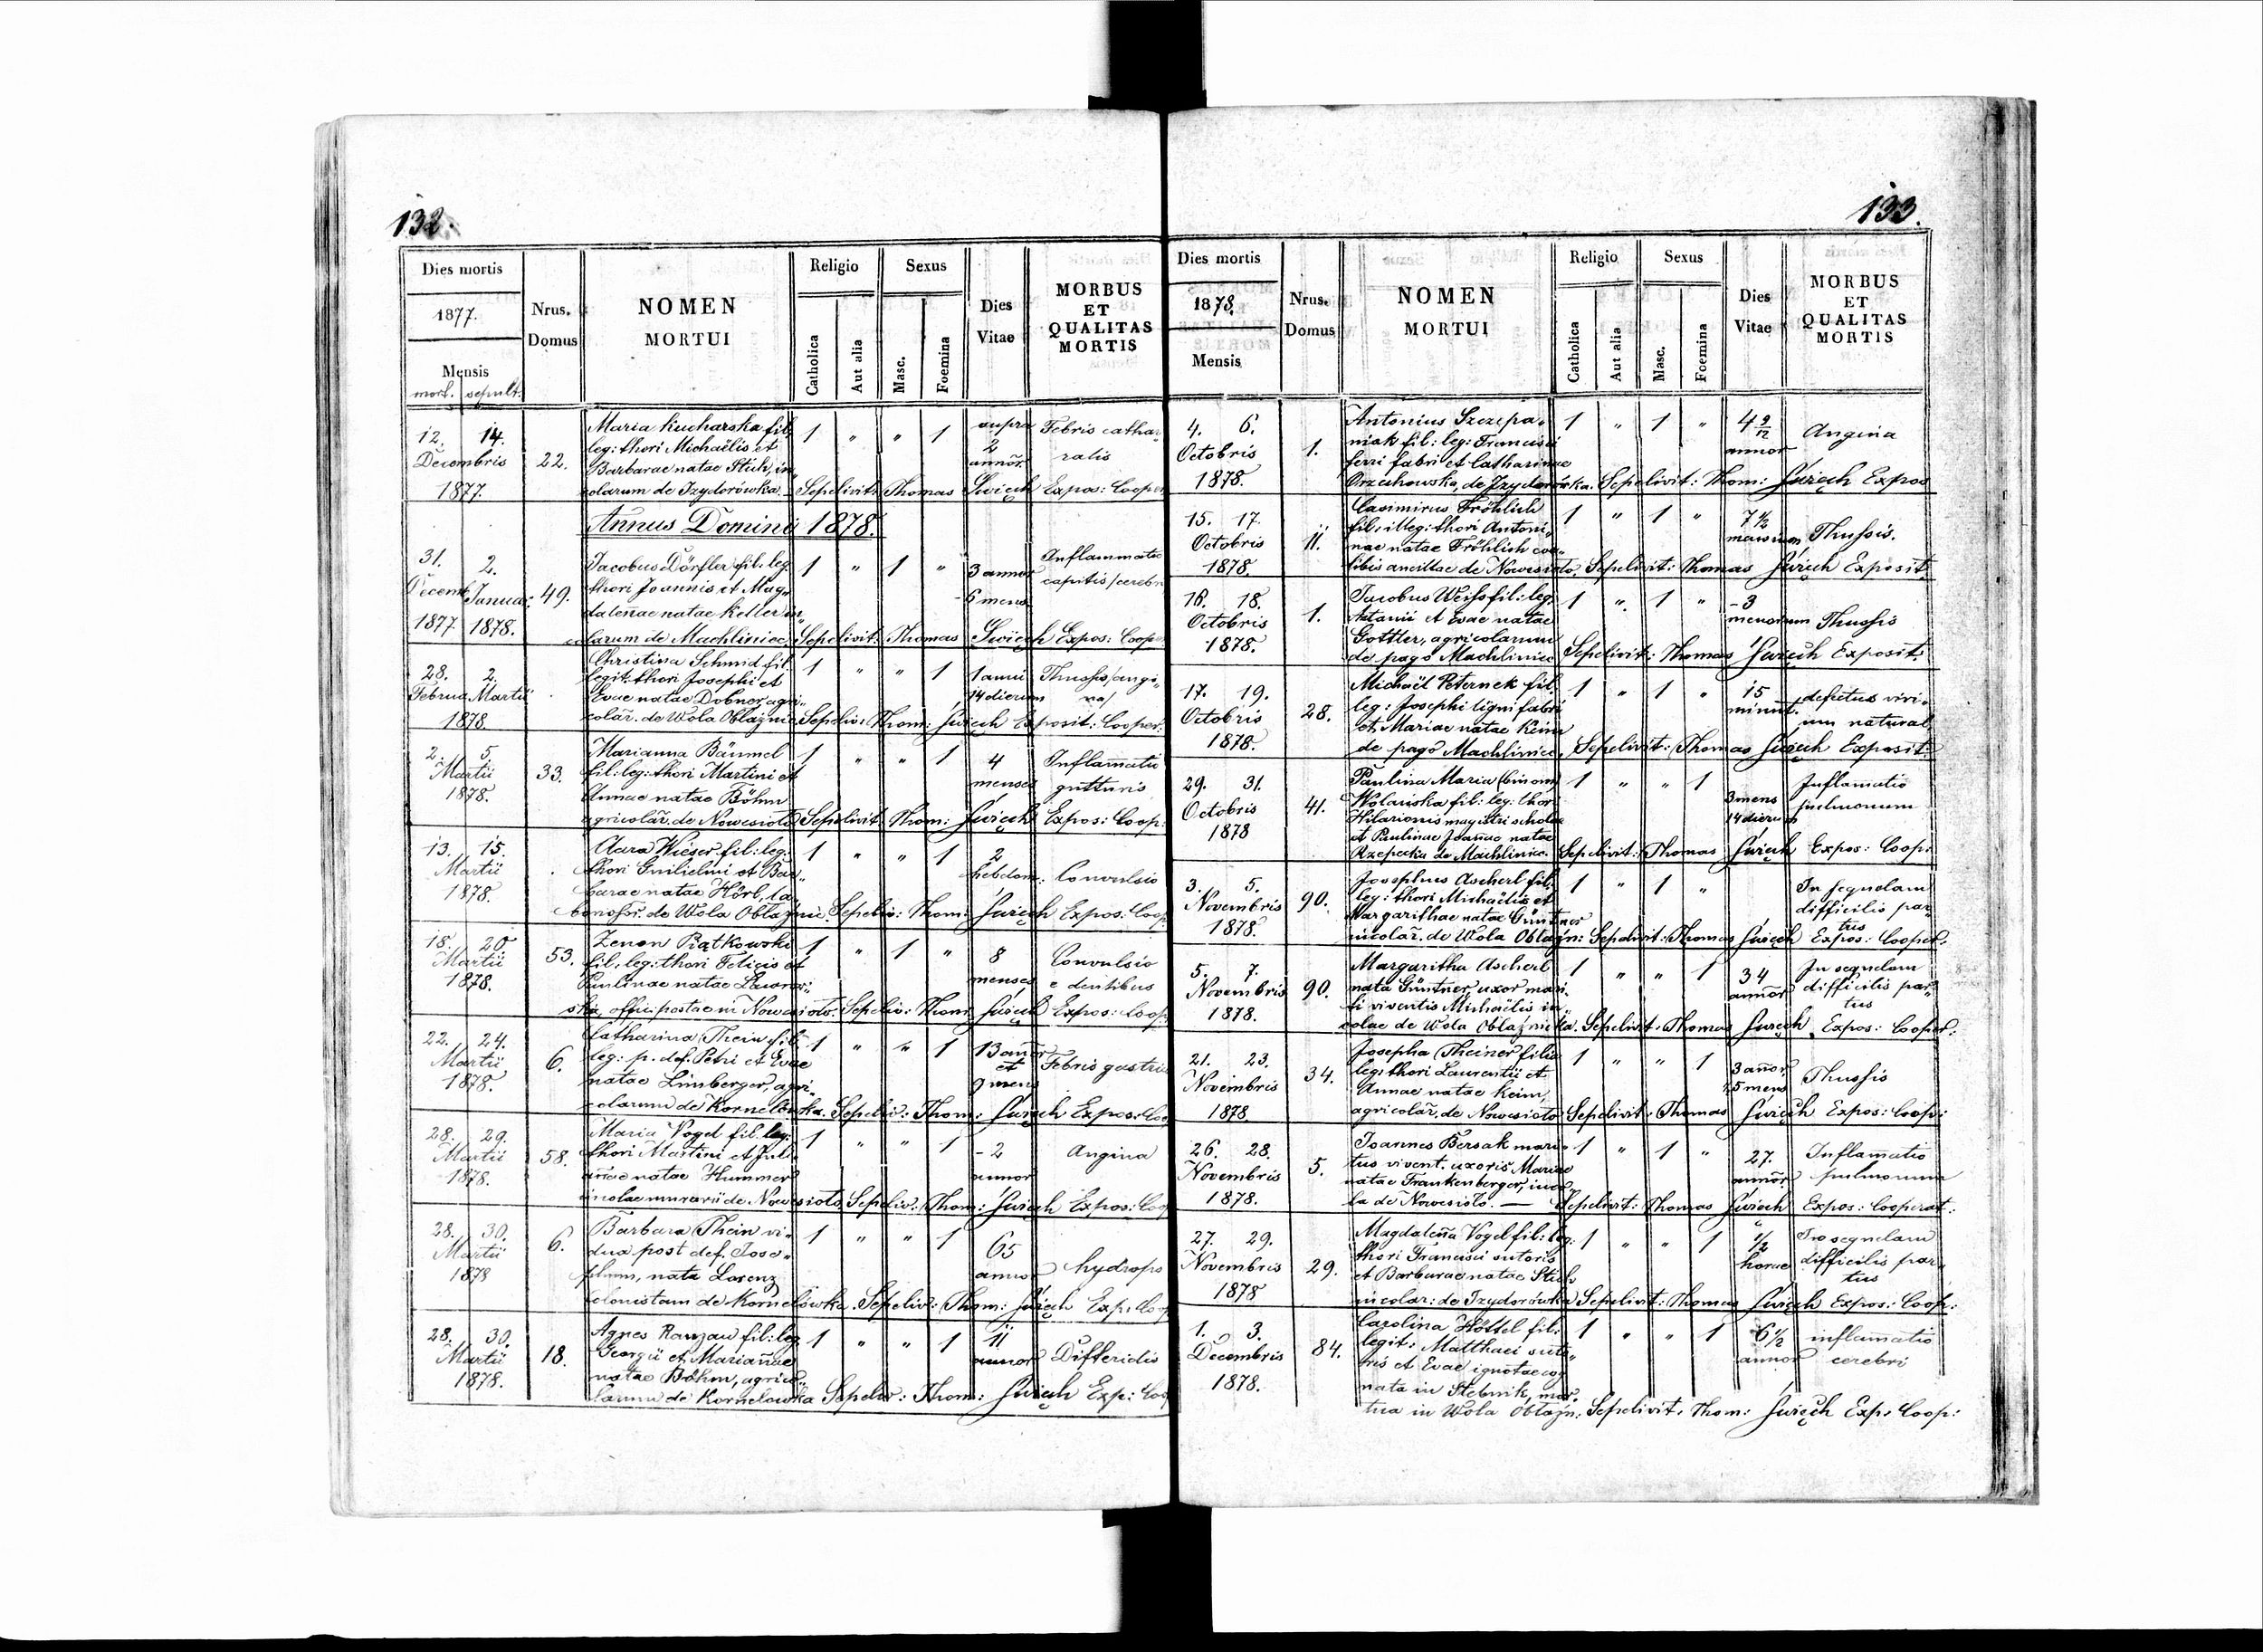 132.
Dies mortis
1877.
Mensis
mort. sepult.
Nrus. Domus
NOMEN
MORTUI
Religio
Catholica
Aut alia
Sexus
Masc.
Foemina
Dies Vitae
MORBUS
ET
QUALITAS
MORTIS
12. 14. Maria Kucharska fil: 1 " " 1 supra Febris catha-
leg: thori Michaëlis et 2 ralis
Decembris 22. Barbarae natae Stich, in- annor.
1877. colarum de Izydorówka. Sepelivit: Thomas Święch Expos: Cooper
Annus Domini 1878.
31. 2. Jacobus Dörfler fil: leg. 1 " 1 " 3 annor Inflammatio
Decemb Januar: 49. thori Joannis et Mag- 6 mens capitis/cerebr
dalenae natae Keller in-
1877 1878. colarum de Machliniec Sepelivit: Thomas Święch Expos: Coop
28. 2. Christina Schmid fil. 1 " " 1 1 anni Thussis/angi-
Februa Martii legit: thori Josephi et 14 dierum na/
Evae natae Dobner, agri-
1878. colar. de Wola Oblaznic Sepeliv: Thom: Święch Exposit: Cooper:
2. 5. Marianna Bäumel 1 " " 1 4 Inflamatio
Martii 33. fil: leg: thori Martini et menses gutturis
1878. Annae natae Böhm
agricolar. de Nowesioło Sepelivit Thom: Święch Expos: Coop:
13. 15. Clara Wieser fil: leg: 1 " " 1 2
Martii thori Guilielmi et Bar- hebdom: Convulsio
1878. barae natae Hörl, la-
de Wola Oblaznic. Sepeliv: Thom: Święch Expos: Coop
18. 20 Zenon Piątkowski 1 " 1 " 8 Convulsio
Martii 53. fil: leg: thori Felicis et menses e dentibus
1878. Paulinae natae
ska, offic: postae in Nowesioło. Sepeliv: Thom Święch Expos: Coop:
22. 24. Catharina Thein fil: 1 " " 1 13 anor Febris gastri
Martii 6. leg: p. def. Petri et Evae et
1878. natae Limberger, agri- 9 mens
colarum de Kornelówka. Sepeliv: Thom: Święch Expos: Coo
28. 29. Maria Vogel fil. leg: 1 " " 1 - 2 Angina
Martii 58. thori Martini et Juli- annor
1878. anae natae Hummer
incolae murarii de Nowesioło Sepeliv: Thom: Święch Expos: Coop
28. 30. Barbara Thein vi- 1 " " 1 65 hydrops
Martii 6. dua post def. Jose- annor
1878 phum, nata Lorenz
colonistam de Kornelówka. Sepeliv: Thom: Święch Exp: Coop
28. 30. Agnes Ranzau fil: leg 1 " " 1 11 Differidis
Martii 18. Georgii et Marianae annor
1878. natae Böhm, agrico-
larum de Kornelowka Sepeliv: Thom: Święch Exp: Coo
133.
Dies mortis
1878.
Mensis
Nrus. Domus
NOMEN
MORTUI
Religio
Catholica
Aut alia
Sexus
Masc.
Foemina
Dies Vitae
MORBUS
ET
QUALITAS
MORTIS
4. 6. Antonius Szczepa- 1 " 1 " 4 9/12 Angina
Octobris 1. niak fil: leg: Francisci annor
ferri fabri et Catharinae
1878. Orzechowska, de Izydorówka. Sepelivit: Thom: Święch Expos
15. 17. Casimirus Fröhlich 1 " 1 " 7 1/2 Thussis.
Octobris 11. fil: illeg: thori Antoni- mensium
nae natae Fröhlich coe-
1878. libis ancillae de Nowesioło. Sepelivit: Thomas Święch Exposit:
16. 18. Jacobus Weiss fil: leg: 1 " 1 " - 3 Thussis
Octobris 1. Antonii et Evae natae mensium
1878. Gottler, agricolarum
de pago Machliniec Sepelivit: Thomas Święch Exposit:
17. 19. Michaël Peternek fil. 1 " 1 " 15 defectus viri-
Octobris 28. leg: Josephi ligni fabri minut. um natural.
et Mariae natae Keim
1878. de pago Machliniec. Sepelivit: Thomas Święch Exposit:
29. 31. Paulina Maria (binom) 1 " " 1 3 mens Inflamatio
Octobris 41. Wolanska fil: leg: thori 14 dierum pulmonum
Hilarionis magistri scholae
1878 et Paulinae Joanae natae
Rzepecka de Machliniec. Sepelivit: Thomas Święch Expos: Coop:
3. 5. Josephus Ascherl fil: 1 " 1 " In sequelam
Novembris 90. leg: thori Michaëlis et difficilis par-
1878. Margarithae natae Güntner tus
incolar. de Wola Oblazn: Sepelivit: Thomas Święch Expos: Cooper.
5. 7. Margaritha Ascherl 1 " " 1 34 In sequelam
Novembris 90. nata Güntner uxor mari- annor difficilis par-
1878. ti viventis Michaëlis in- tus
colae de Wola Oblaznicka. Sepelivit: Thomas Święch Expos: Cooper:
21. 23. Josepha Theiner filia 1 " " 1 3 anor Thussis
Novembris 34. leg: thori Laurentii et 5 mens
Annae natae Keim,
1878 agricolar. de Nowesioło Sepelivit: Thomas Święch Expos: Coop:
26. 28. Joannes Bersak mari- 1 " 1 " 27. Inflamatio
Novembris 5. tus vivent. uxoris Mariae annor pulmonum
natae Frankenberger, inco-
1878. la de Nowesioło. — Sepelivit: Thomas Święch Expos: Cooperat:
27. 29. Magdalena Vogel fil: leg: 1 " " 1 1/2 In sequelam
Novembris 29. thori Francisci sutoris horae difficilis par-
et Barbarae natae Stich tus
1878 incolar: de Izydorówka Sepelivit: Thomas Święch Expos: Coop:
1. 3. Carolina Höttel fil: 1 " " 1 6 1/2 inflamatio
Decembris 84. legit: Matthaei suto- annor cerebri
ris et Evae ignotae cog
1878. nata in Stebnik, mor-
tua in Wola Oblazn: Sepelivit: Thom: Święch Exp: Coop: